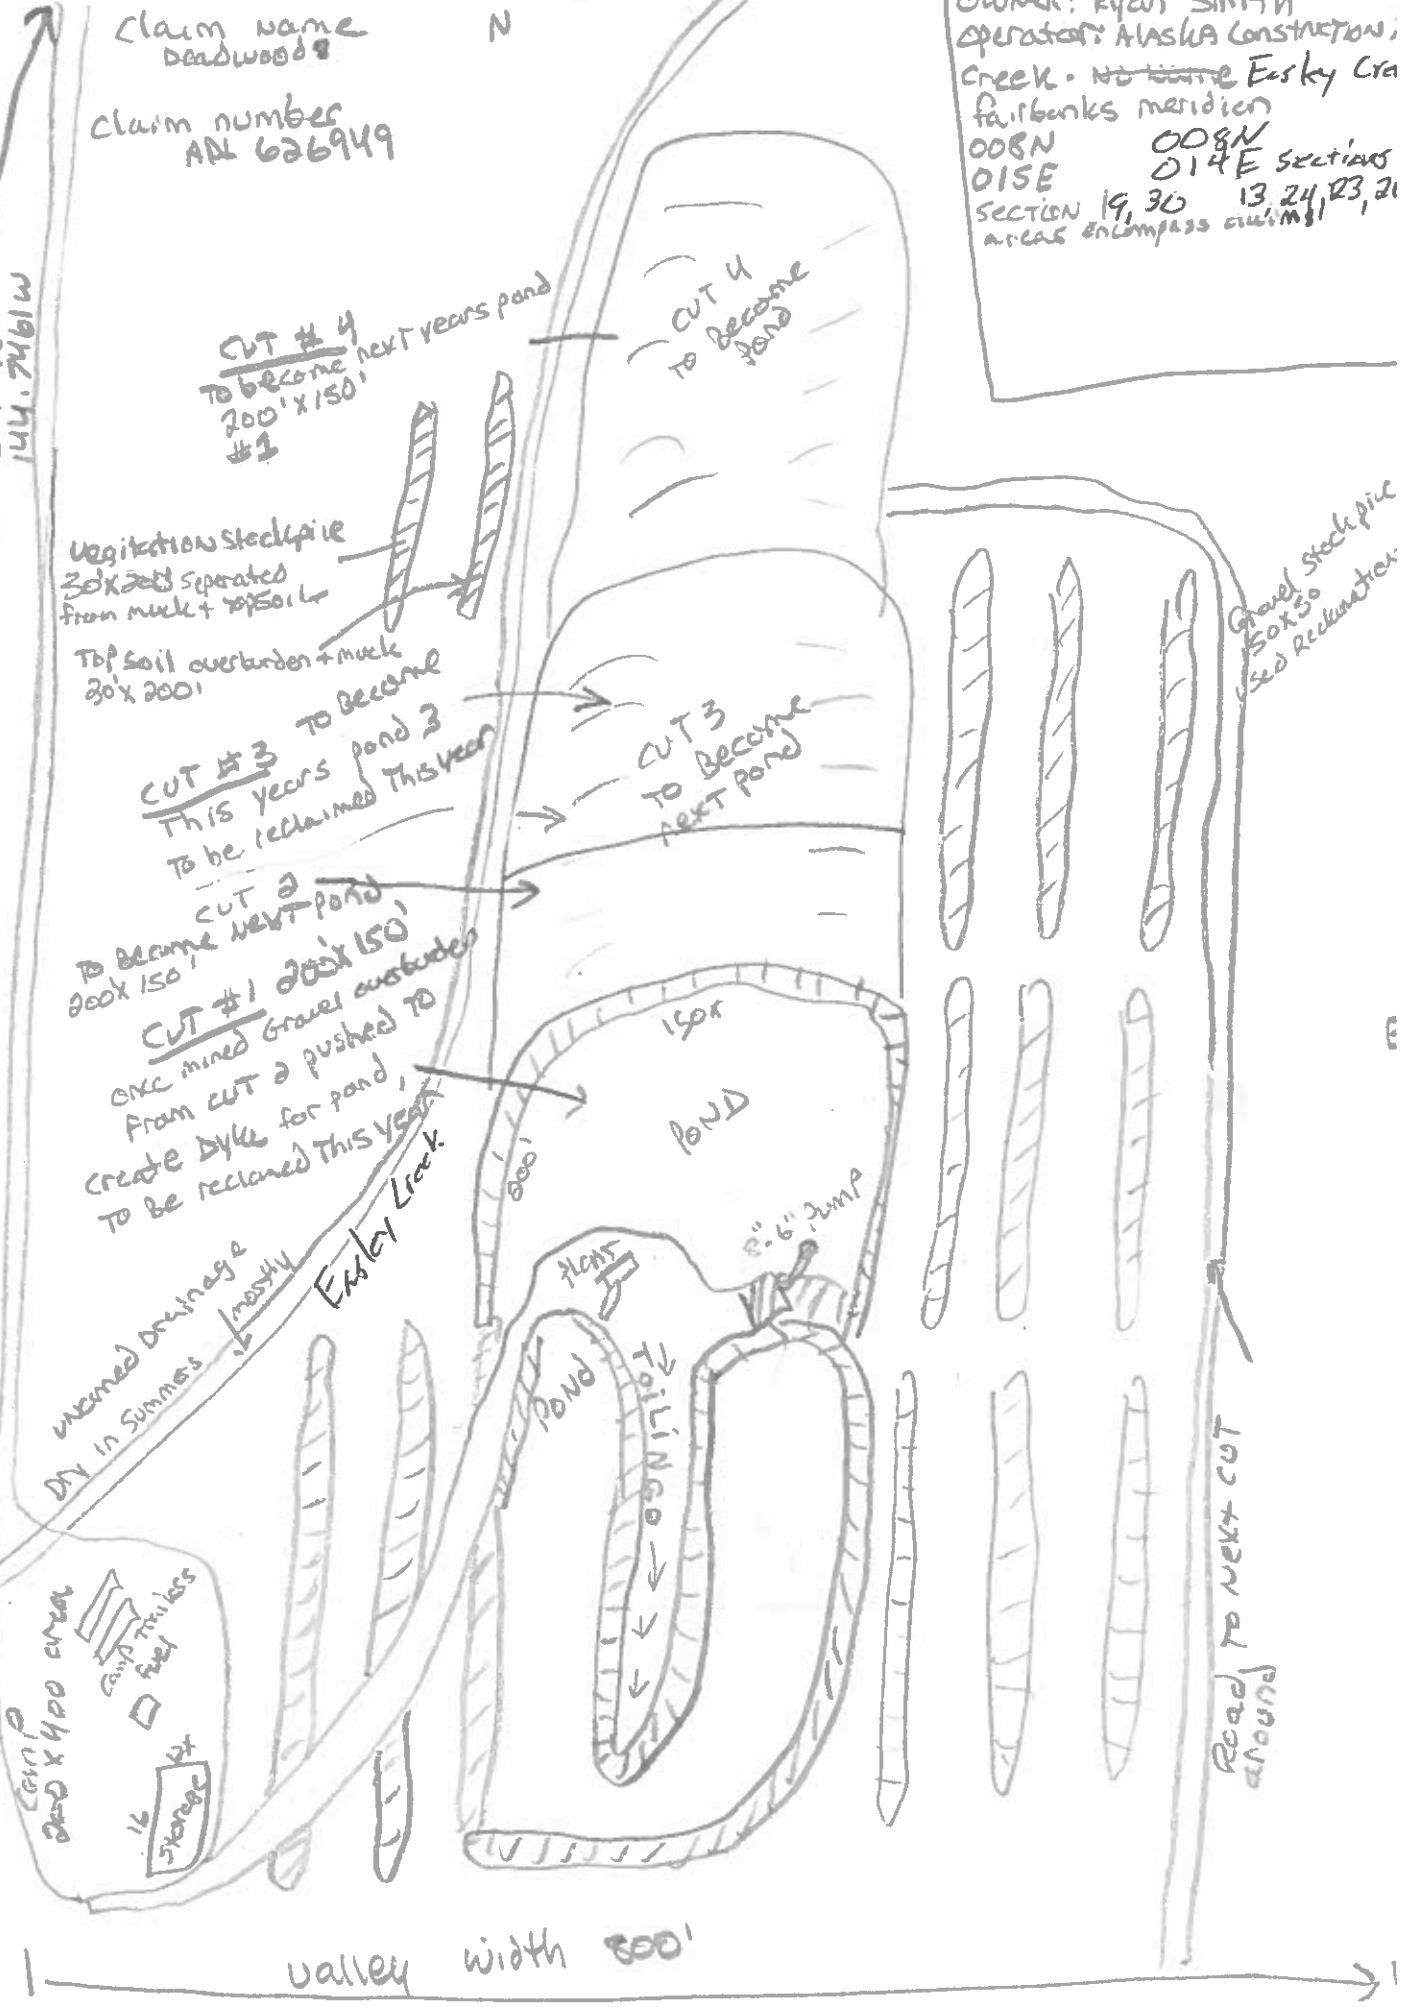 Claim name
Deadwood 8
N
Claim number
ADL 626949
Owner: Ryan Smith
operator: Alaska Construction,
Creek. No name Easky Cre
fairbanks meridien
008N 008N
015E 014E Sections
Section 19, 30 13, 24, 23,
areas encompass claims
144.7461W
CUT # 4
To become next years pond
200' X 150'
#1
CUT 4
to Become
Pond
Vegitation Stockpile
30'X200' Seperated
from muck + topsoil
Top Soil overburden + muck
30'X200'
Gravel Stockpile
50X50
used Reclamation
CUT #3 To Become
This years pond 3
To be reclaimed This year
CUT 3
To Become
next pond
CUT 2
To Become Next Pond
200X150'
CUT #1 200'X150'
once mined Gravel overburden
from cut 2 pushed to
create Dyke for pond,
To Be reclamed This year
E
150X
200'
POND
8"-6" Pump
Plant
Easky Creek
unnamed Drainage
mostly
Dry in Summers
POND
TAILINGS
Road To Next CUT
around
Camp
200 X 400 area
Camp Trailers
fuel
16
Storage
valley width 800'